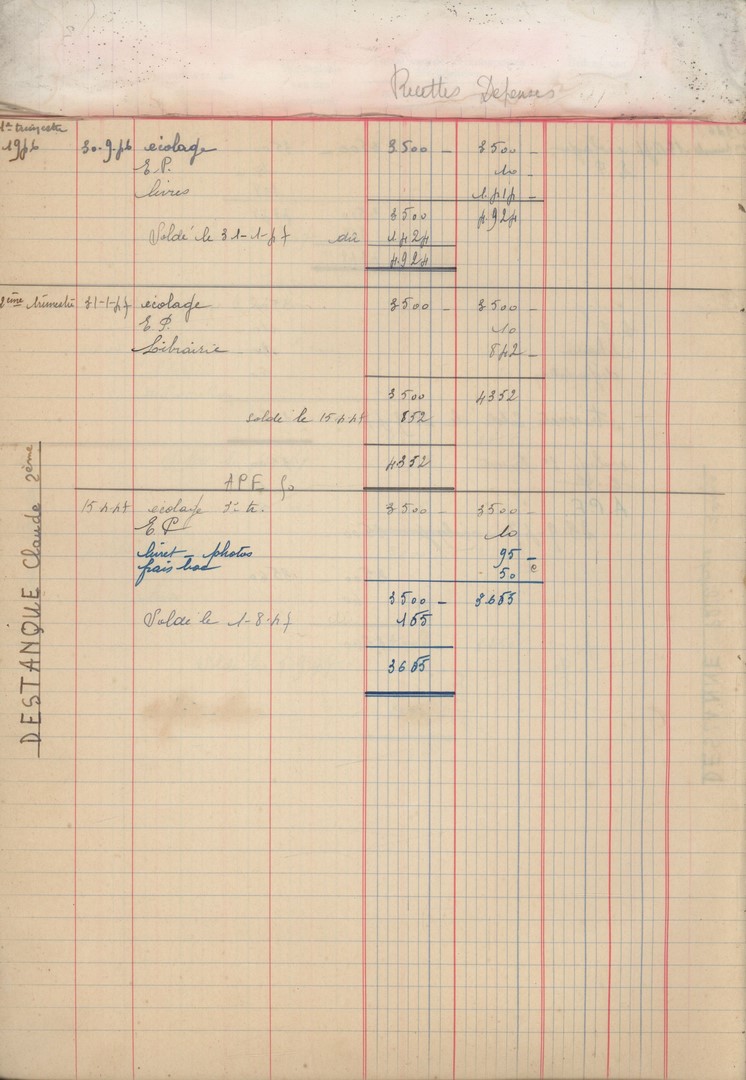 Recettes Depenses
1er trimestre
1956 30.9.56 écolage 3500 - 3500 -
E.P. 10 -
livres 1.414 -
3500 4.924
Soldé le 31-1-57 dû 1.424
4.924
2ème trimestre 31-1-57 écolage 3500 - 3500 -
E.P. 10
Librairie 842 -
3500 4352
solde le 15.4.57 852
4352
15.4.57 écolage 3e tr. 3500 - 3500 -
E P 10
livret - photos 95 -
frais bac 50
3500 - 3655
Soldé le 1-8-57 155
3655
DESTANQUE Claude 2ème